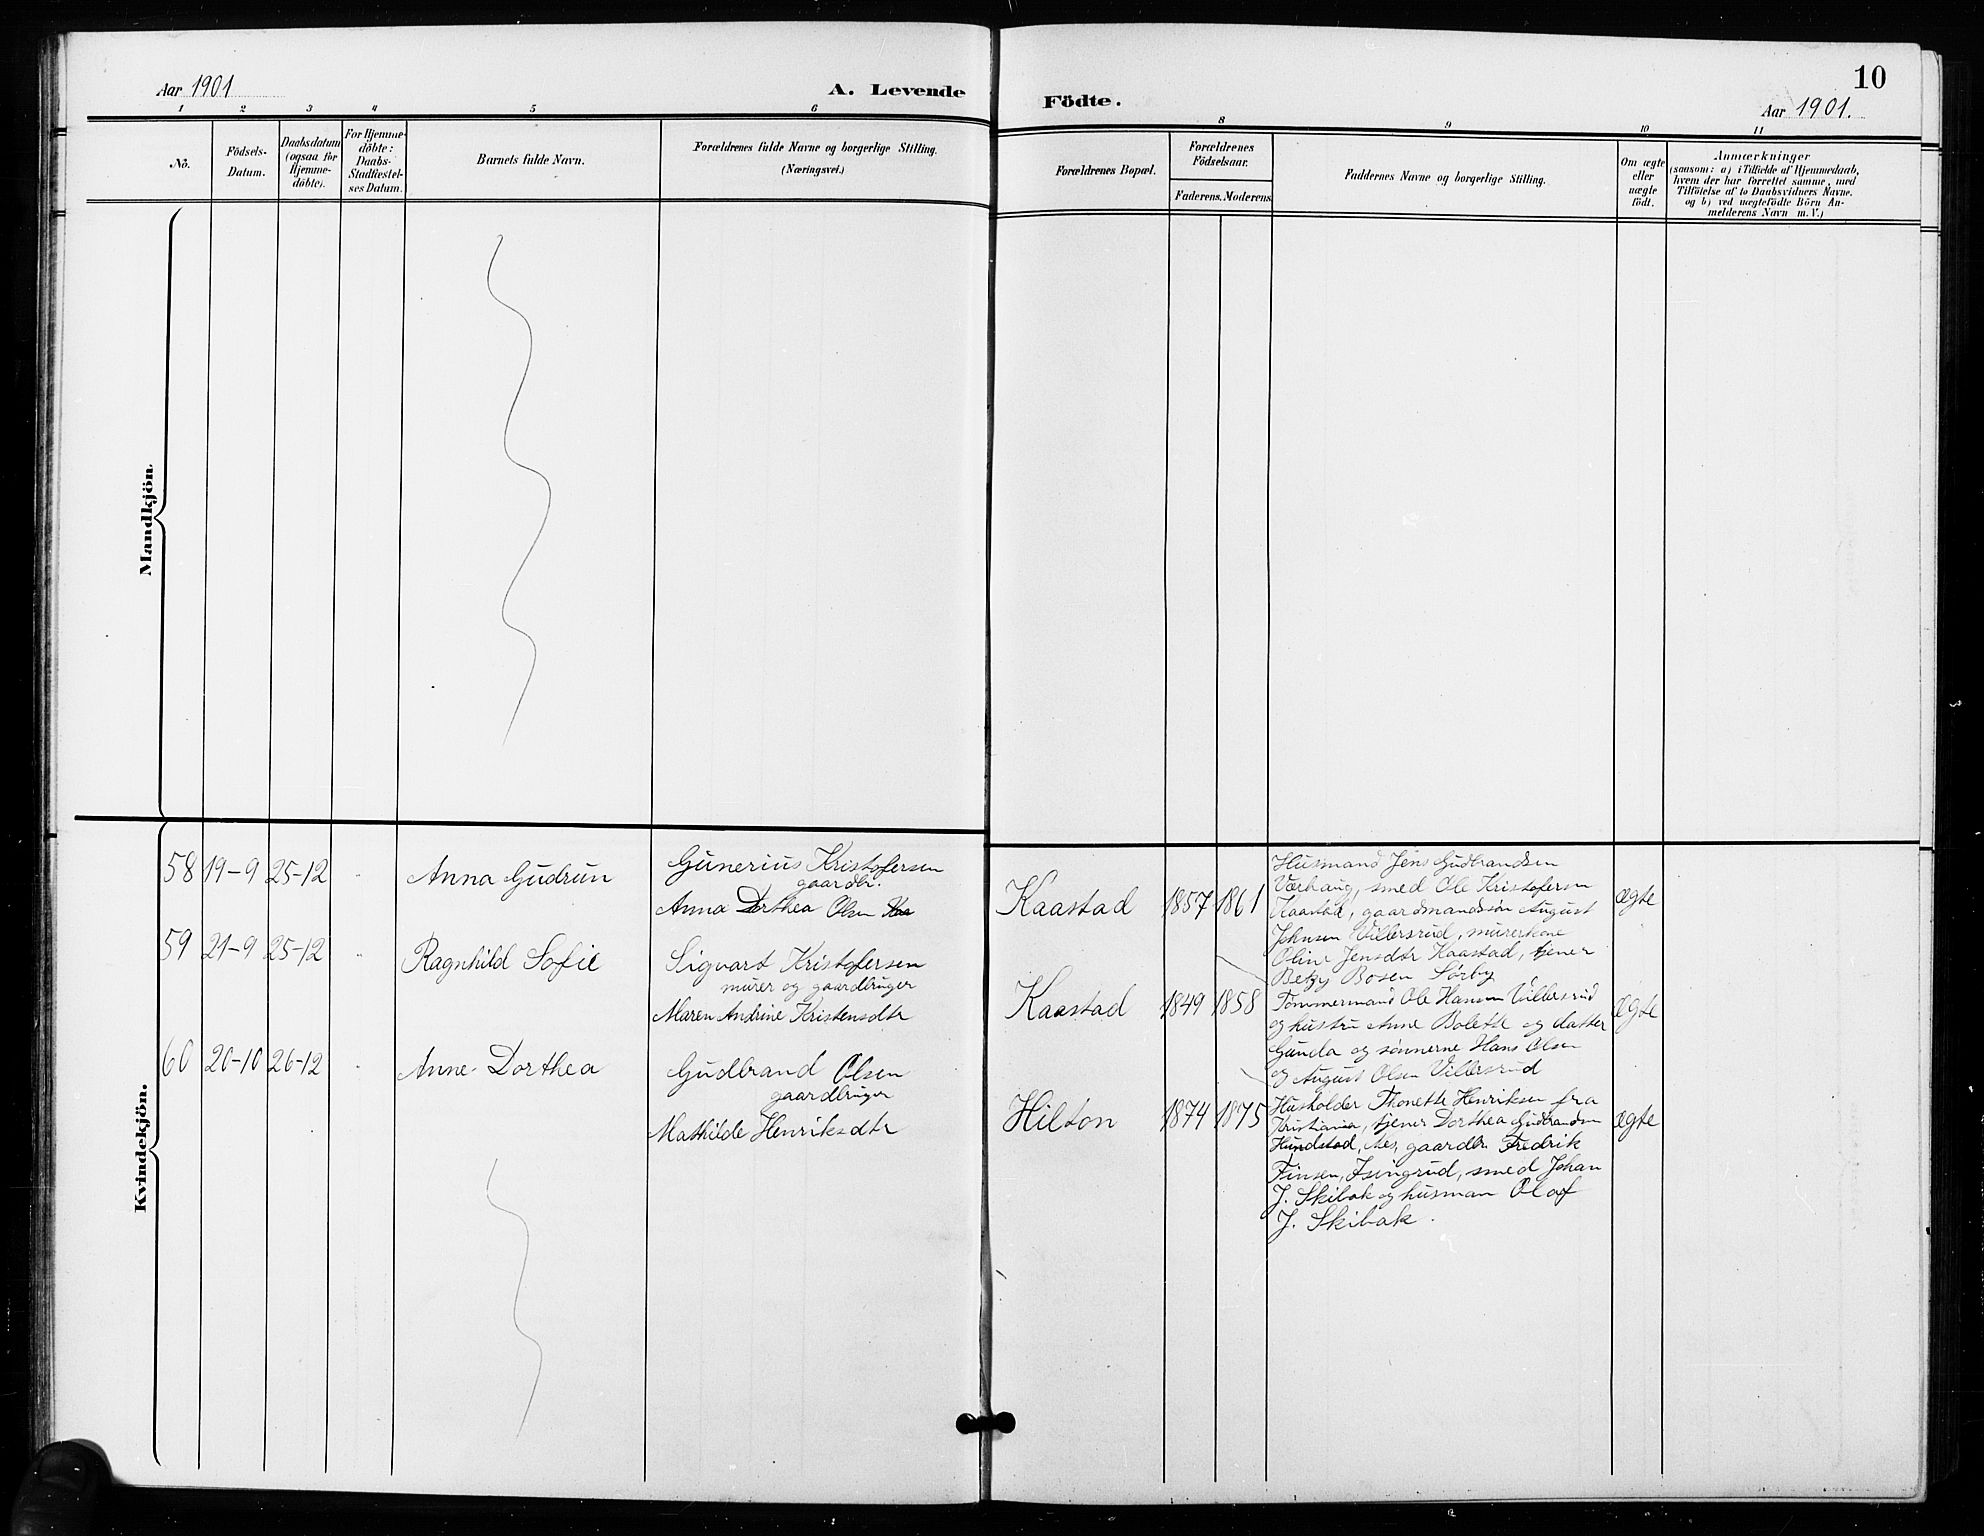 Aar 1901
A. Levende
Födte.
10
Aar 1901.
1 2 3 4 5 6 8 9 10 11
No.
Födsels-
Datum.
Daabsdatum
(ogsaa for
Hjemme-
döbte).
For Hjemme-
döbte:
Daabs-
Stadfæstel-
ses Datum.
Barnets fulde Navn.
Forældrenes fulde Navne og borgerlige Stilling.
(Næringsvei.)
Forældrenes Bopæl.
Forældrenes
Födselsaar.
Faderens. Moderens.
Faddernes Navne og borgerlige Stilling.
Om ægte
eller
uægte
födt.
Anmærkninger
(saasom: a) i Tilfælde af Hjemmedaab,
hvem der har forrettet samme, med
Tilföielse af to Daabsvidners Navne.
og b) ved uægtefödte Börn An-
melderens Navn m. V.)
Mandkjön.
Kvindekjön.
58 19-9 25-12 " Anna Gudrun
Gunerius Kristofersen
gaardbr.
Anna Dorthea Olsen
Kaastad 1857 1861
Husmand Jens Gudbrandsen
Værhaug, smed Ole Kristofersen
Kaastad, gaardmandssøn August
Johnsen Villersrud, murerkone
Oline Jensdtr Kaastad, tjener
Betzy Bosen Sørby
ægte
59 21-9 25-12 " Ragnhild Sofie
Sigvart Kristofersen
murer og gaardbruger
Maren Andrine Kristensdtr
Kaastad 1849 1858
Tømmermand Ole Hansen Villersrud
og hustru Anne Bolette og datter
Gunda og sønnerne Hans Olsen
og August Olsen Villersrud
ægte
60 20-10 26-12 " Anne Dorthea
Gudbrand Olsen
gaardbruger
Mathilde Henriksdtr
Hilton 1874 1875
Husholder Thonette Henriksen fra
Kristiania, tjener Dorthea Gudbrandsen
Hundstad, Nes, gaardbr. Fredrik
Finsen, Isingrud, smed Johan
J. Skibak og husman Olaf
J. Skibak.
ægte